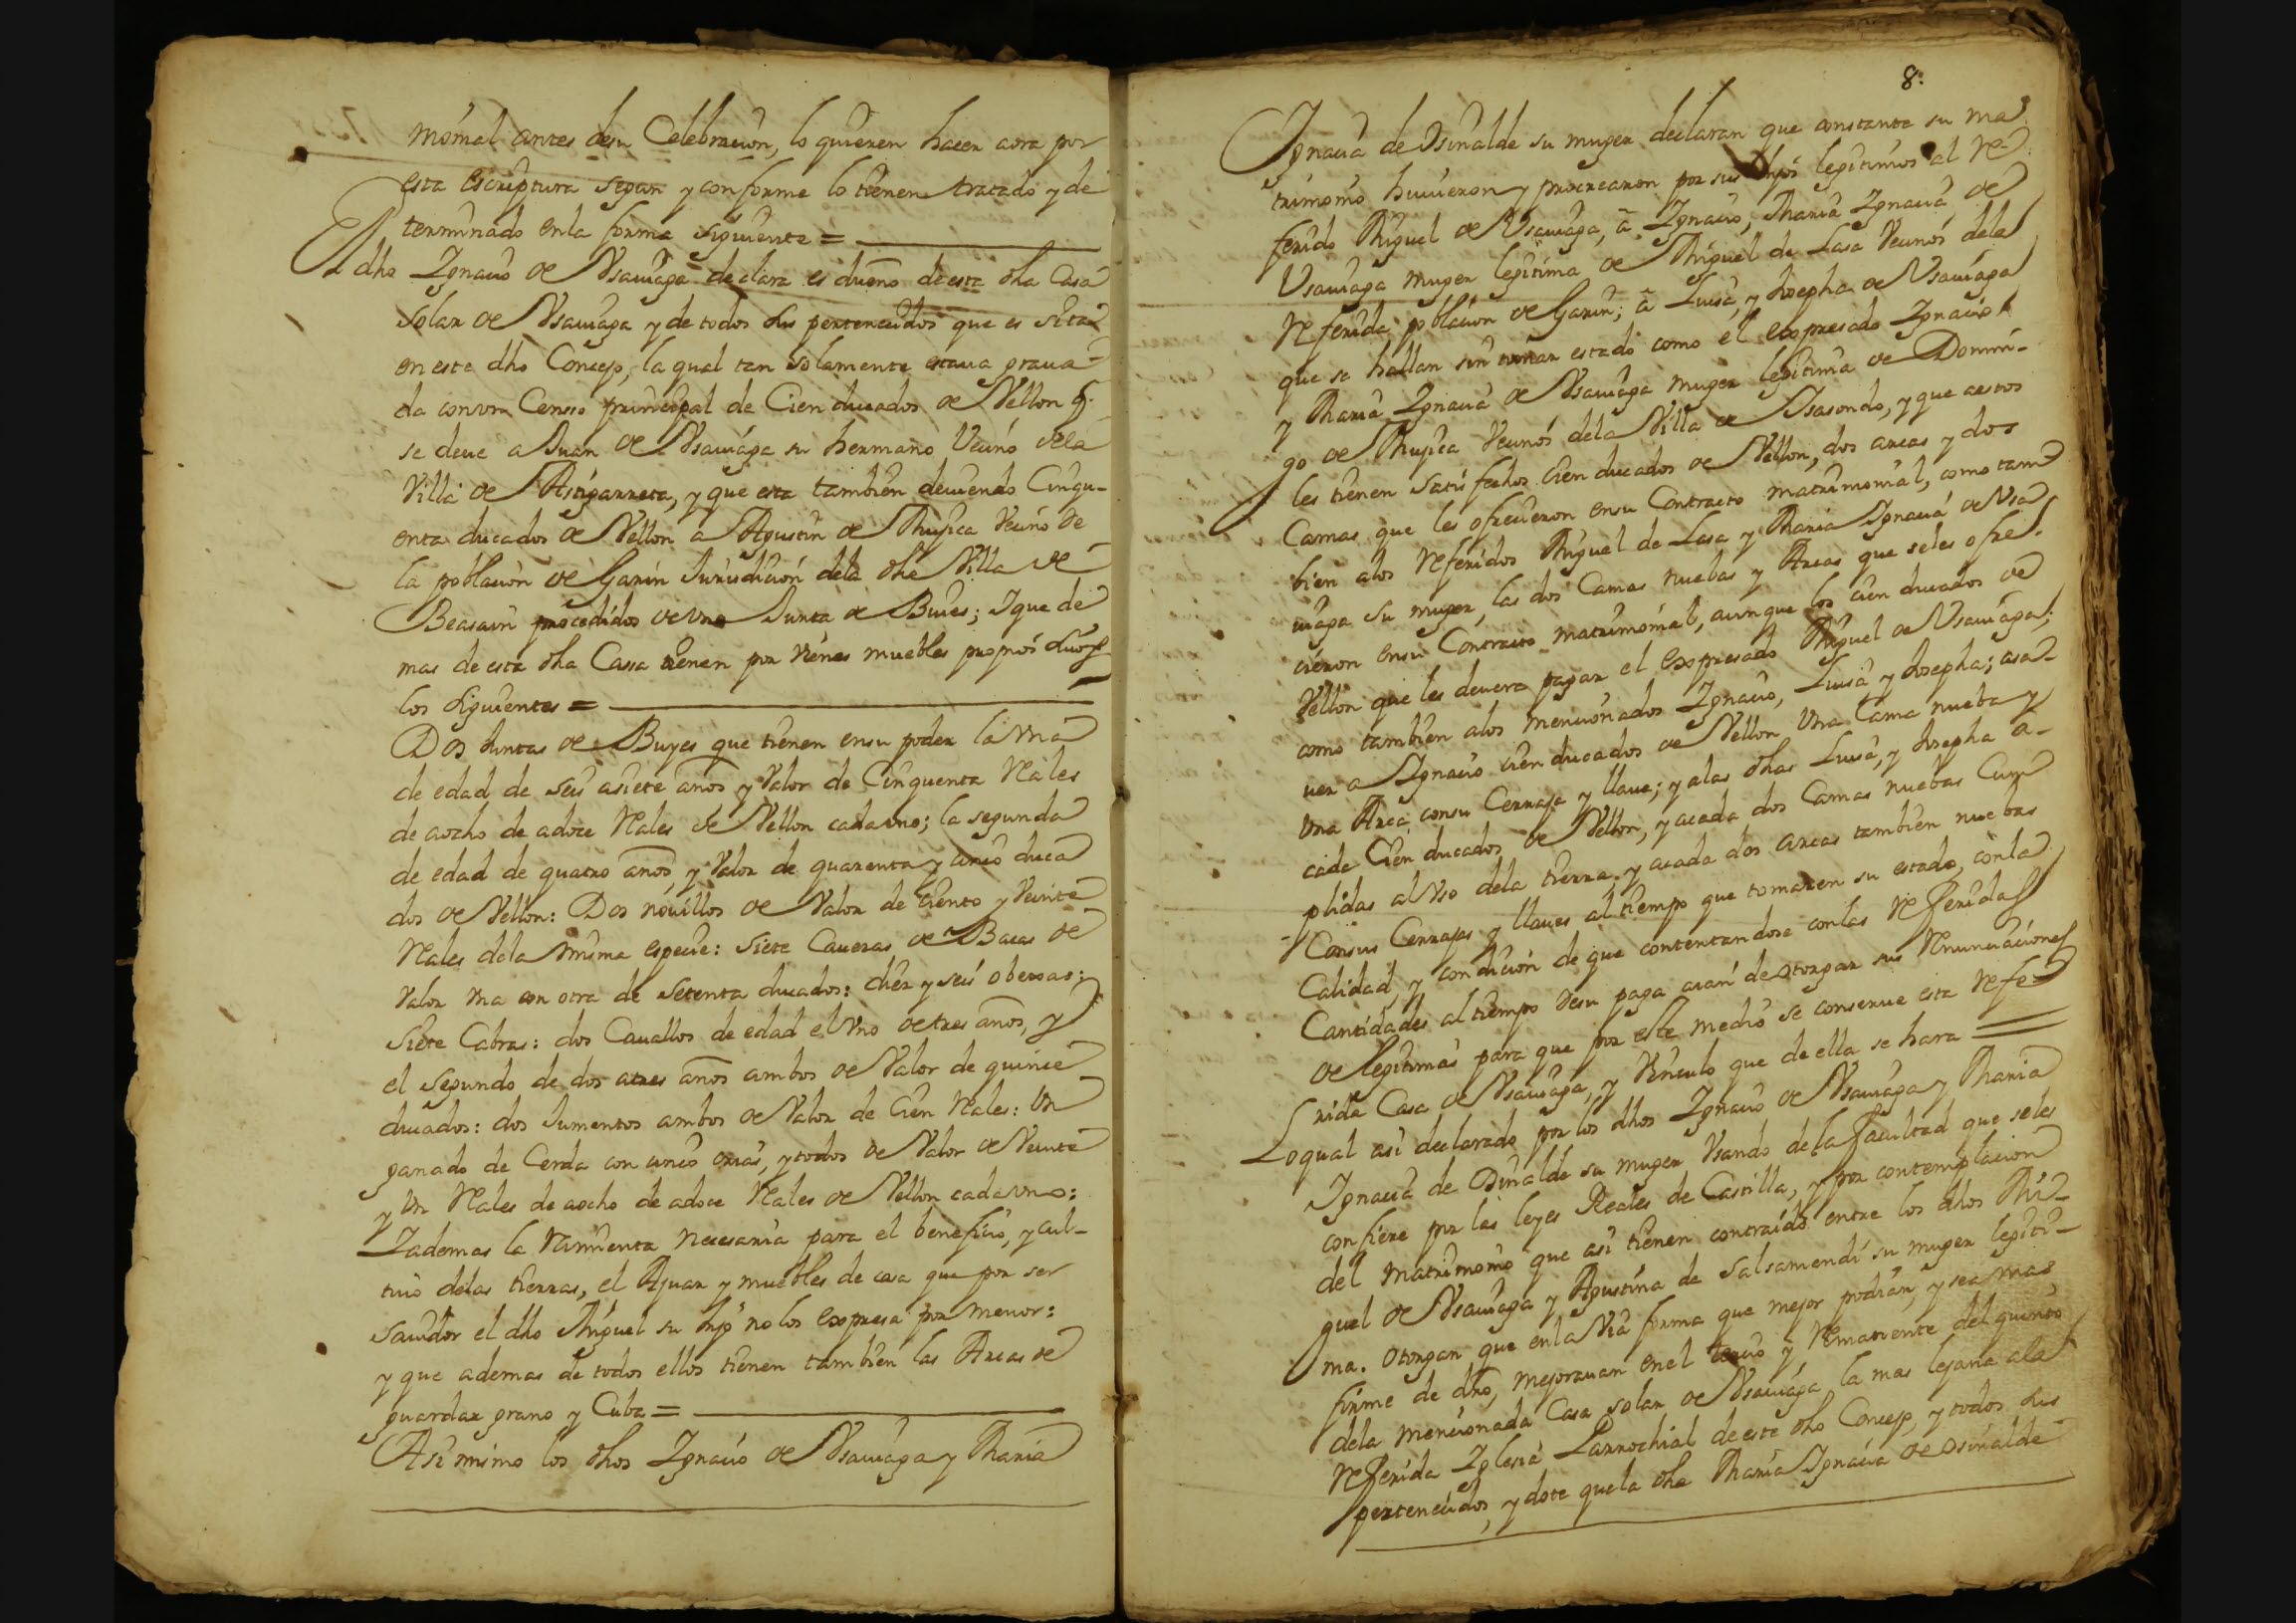 monial antes desu Celebracion, lo quieren hacer aora por
esta escriptura segun y conforme lo tienen tratado y de
terminado enla forma siguiente =
El dho Ignacio de Vsauiaga declara es dueño de esta dha Casa
solar de Vsauiaga y de todos sus pertenecidos que es sita
en este dho Concejo, la qual tan solamente estaua graua
da con vn Censso principal de Cien ducados de Vellon q.
se deue a Juan de Vsauiaga su hermano Vecino dela
Villa de Astigarreta, y que esta tambien deuiendo Cinqu-
enta ducados de Vellon a Agustin de Mujica Vecino de
la poblacion de Garin Jurisdicion dela dha Villa de
Beasain procedidos de vna Junta de Bueies; Y que de
mas de esta dha Cassa tienen por vienes muebles propios suios
los siguientes =
Dos Juntas de Buyes que tienen ensu poder la vna
de edad de seis asiete años y Valor de Cinquenta Rales
de aocho de adoce Rales de Vellon cada vno; la segunda
de edad de quatro años, y Valor de quarenta y cinco duca
dos de Vellon: Dos nouillos de Valor de Ciento y Veinte
Rales dela misma especie: siete Caueras de Bacas de
Valor vna con otra de setenta ducados: diez y seis obexas:
Siete Cabras: dos Cauallos de edad el vno de tres años, y
el segundo de dos atres años ambos de Valor de quince
ducados: dos Jumentos ambos de Valor de Cien Rales: Vn
ganado de Cerda con cinco crias, y todos de Valor de Veinte
y Vn Rales de aocho de adoce Rales de Vellon cada vno:
Y ademas la Ramienta necesaria para el beneficio, y cul-
tiuo delas tierras, el Ajuar y muebles de casa que por ser
sauidor el dho Miguel su hijo no los expresa por menor:
y que ademas de todos ellos tienen tambien las Arcas de
guardar grano y Cuba =
Asi mimo los dhos Ignacio de Vsauiaga y Maria
8.
Ignacia de Osinalde su muger declaran que constante su ma
trimonio huuieron y procrearon por sus hijos legitimos al re
ferido Miguel de Vsauiaga, à Ignacio, Maria Ignacia de
Vsauiaga muger legitima de Miguel de Lasa Vecinos dela
Referida poblacion de Garin; à Luisa, y Josepha de Vsauiaga
que se hallan sin tomar estado como el expresado Ignacio
y Maria Ignacia de Vsauiaga muger legitima de Domin-
go de Mujica Vecinos dela Villa de Isasondo, y que aestos
les tienen satisfechos cien ducados de Vellon, dos arcas y dos
Camas que les ofrecieron ensu Contracto matrimonial, como tam
bien alos Referidos Miguel de Lasa y Maria Ignacia de Vsa
uiaga su muger, las dos Camas nuebas y Arcas que seles ofre
cieron ensu Contracto matrimonial, aunque los cien ducados de
Vellon que les deuera pagar el expresado Miguel de Vsauiaga;
como tambien alos mencionados Ignacio, Luisa y Josepha; asa-
uer a Ignacio cien ducados de Vellon Vna Cama nueba y
vna Arca consu Cerraja y llaue; y alas dhas Luisa, y Josepha a-
cada Cien ducados de Vellon, y acada dos Camas nuebas Cum
plidas al vso dela tierra y acada dos arcas tambien nuebas
Consus Cerrajas y llaues al tiempo que tomaren su estado, conla
Calidad, y condicion de que contentandose conlas Referidas
Cantidades al tiempo desu paga aian de otorgar sus Renunciaciones
de legitimas para que por este medio se conserue esta refe
rida Casa de Vsauiaga, y Vinculo que de ella se hara =
Loqual asi declarado por los dhos Ignacio de Vsauiaga y Maria
Ignacia de Osinalde su muger Vsando dela facultad que seles
confiere por las leyes Reales de Castilla, y por contemplacion
del matrimonio que asi tienen contraido entre los dhos Mi-
guel de Vsauiaga y Agustina de Salsamendi su muger legiti-
ma. Otorgan que enla Via forma que mejor podian, y sea mas
firme de dro, mejorauan enel tercio y Remanente del quinto
dela mencionada Casa solar de Vsauiaga la mas lejana ala
Referida Iglesia Parrochial de este dho Concejo, y todos sus
pertenecidos, y dote quela dha Maria Ignacia de Osinalde